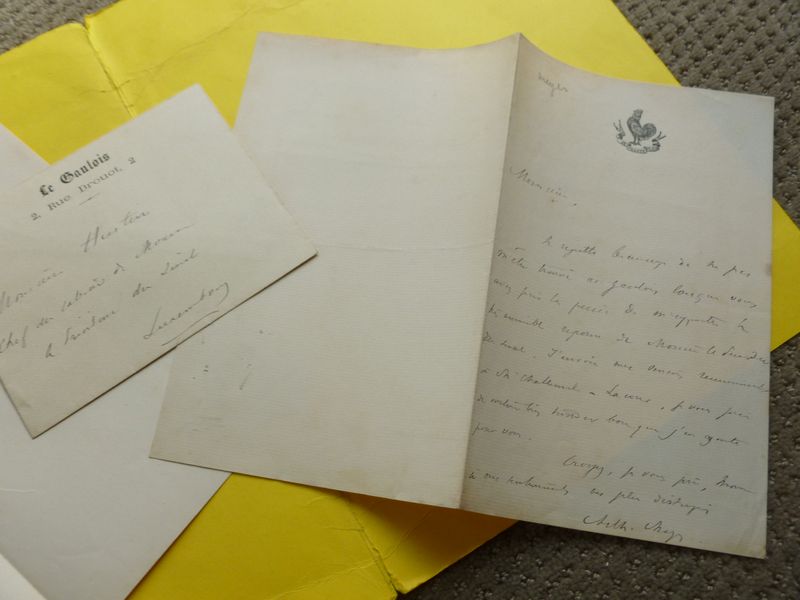 Le Gaulois
2, Rue Drouot, 2
Monsieur Hustin
Chef du cabinet de Monsieur
le Président du Sénat
Luxembourg
Meyer
Monsieur,
Je regrette beaucoup de ne pas
m'être trouvé au Gaulois lorsque vous
avez pris la peine de m'apporter la
réponse de Monsieur le Président
du Sénat. J'envoie mes
à M. Challemel-Lacour, je vous prie
de vouloir bien
pour vous.
Croyez, je vous prie, Monsieur
à mes sentiments les plus distingués
Arth. Meyer